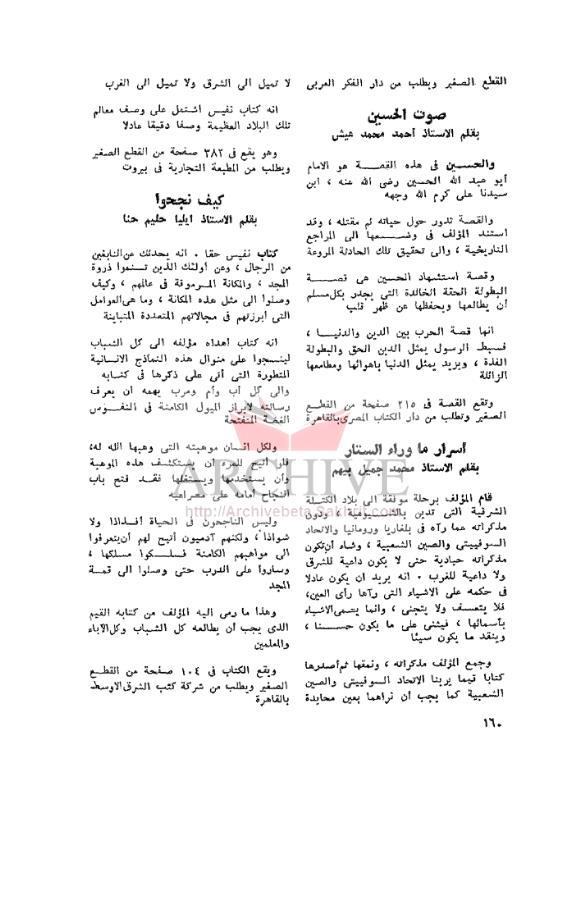 القطع الصغير ويطلب من دار الفكر العربى
صوت الحسين
بقلم الاستاذ أحمد محمد عيش
والحسين فى هذه القصة هو الامام
أبو عبد الله الحسين رضى الله عنه ، ابن
سيدنا على كرم الله وجهه
والقصة تدور حول حياته ثم مقتله ، وقد
استند المؤلف فى وضعها الى المراجع
التاريخية ، والى تحقيق تلك الحادثة المروعة
وقصة استشهاد الحسين هى قصة
البطولة الحقة الخالدة التى يجدر بكل مسلم
أن يطالعها ويحفظها عن ظهر قلب
انها قصة الحرب بين الدين والدنيا ،
فسبط الرسول يمثل الدين الحق والبطولة
الفذة ، ويزيد يمثل الدنيا بأهوائها ومطامعها
الزائلة
وتقع القصة فى ٢١٥ صفحة من القطع
الصغير وتطلب من دار الكتاب المصرى بالقاهرة
أسرار ما وراء الستار
بقلم الاستاذ محمد جميل بيهم
قام المؤلف برحلة موفقة الى بلاد الكتلة
الشرقية التى تدين بالشيوعية ، ودون
مذكراته عما رآه فى بلغاريا ورومانيا والاتحاد
السوفييتى والصين الشعبية ، وشاء أن تكون
مذكراته حيادية حتى لا يكون داعية للشرق
ولا داعية للغرب . انه يريد ان يكون عادلا
فى حكمه على الاشياء التى رآها رأى العين،
فلا يتعسف ولا يتجنى ، وانما يسمى الاشياء
بأسمائها ، فيثنى على ما يكون حسنا ،
وينقد ما يكون سيئا
وجمع المؤلف مذكراته ، ونمقها ثم أصدرها
كتابا قيما يرينا الاتحاد السوفييتى والصين
الشعبية كما يجب أن نراهما بعين محايدة
لا تميل الى الشرق ولا تميل الى الغرب
انه كتاب نفيس اشتمل على وصف معالم
تلك البلاد العظيمة وصفا دقيقا عادلا
وهو يقع فى ٣٨٢ صفحة من القطع الصغير
ويطلب من المطبعة التجارية فى بيروت
كيف نجحوا
بقلم الاستاذ ايليا حليم حنا
كتاب نفيس حقا . انه يحدثك عن النابغين
من الرجال ، وعن أولئك الذين تسنموا ذروة
المجد ، والمكانة المرموقة فى عالمهم ، وكيف
وصلوا الى مثل هذه المكانة ، وما هى العوامل
التى أبرزتهم فى مجالاتهم المتعددة المتباينة
انه كتاب أهداه مؤلفه الى كل الشباب
لينسجوا على منوال هذه النماذج الانسانية
المتطورة التى أتى على ذكرها فى كتابه
والى كل أب وأم ومرب يهمه ان يعرف
رسالته لابراز الميول الكامنة فى النفوس
الغضة المتفتحة
ولكل انسان موهبته التى وهبها الله له،
فان أتيح للمرء أن يستكشف هذه الموهبة
وأن يستخدمها ويستغلها فقد فتح باب
النجاح أمامه على مصراعيه
وليس الناجحون فى الحياة أفذاذا ولا
شواذا ، ولكنهم آدميون أتيح لهم أن يتعرفوا
الى مواهبهم الكامنة فسلكوا مسلكها ،
وساروا على الدرب حتى وصلوا الى قمة
المجد
وهذا ما رمى اليه المؤلف من كتابه القيم
الذى يجب أن يطالعه كل الشباب وكل الآباء
والمعلمين
ويقع الكتاب فى ١٠٤ صفحة من القطع
الصغير ويطلب من شركة كتب الشرق الاوسط
بالقاهرة
١٦٠
ARCHIVE
http://Archivebeta.Sakhrit.com